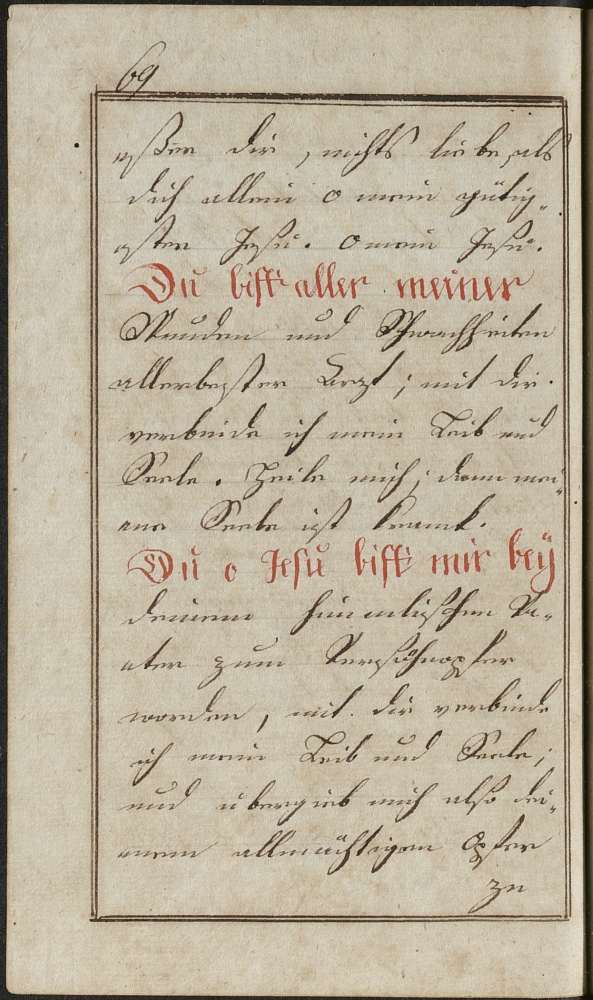 69
aßer dir, nichts liebe, als
dich allein o mein gütig„
ster Jesu. O mein Jesu.
Du bist aller meiner
Wunden und Schwachheiten
allerbester Arzt; mit dir.
verbinde ich mein Leib und
Seele. Heile mich; dann mei„
ne Seele ist krank.
Du o Jesu bist mir beÿ
deinem himmlischen Va„
ater zum Versöhnopfer
worden, mit dir verbinde
ich mein Leib und Seele;
und übergieb mich also dei„
nem allmächtigen Opfer
zu